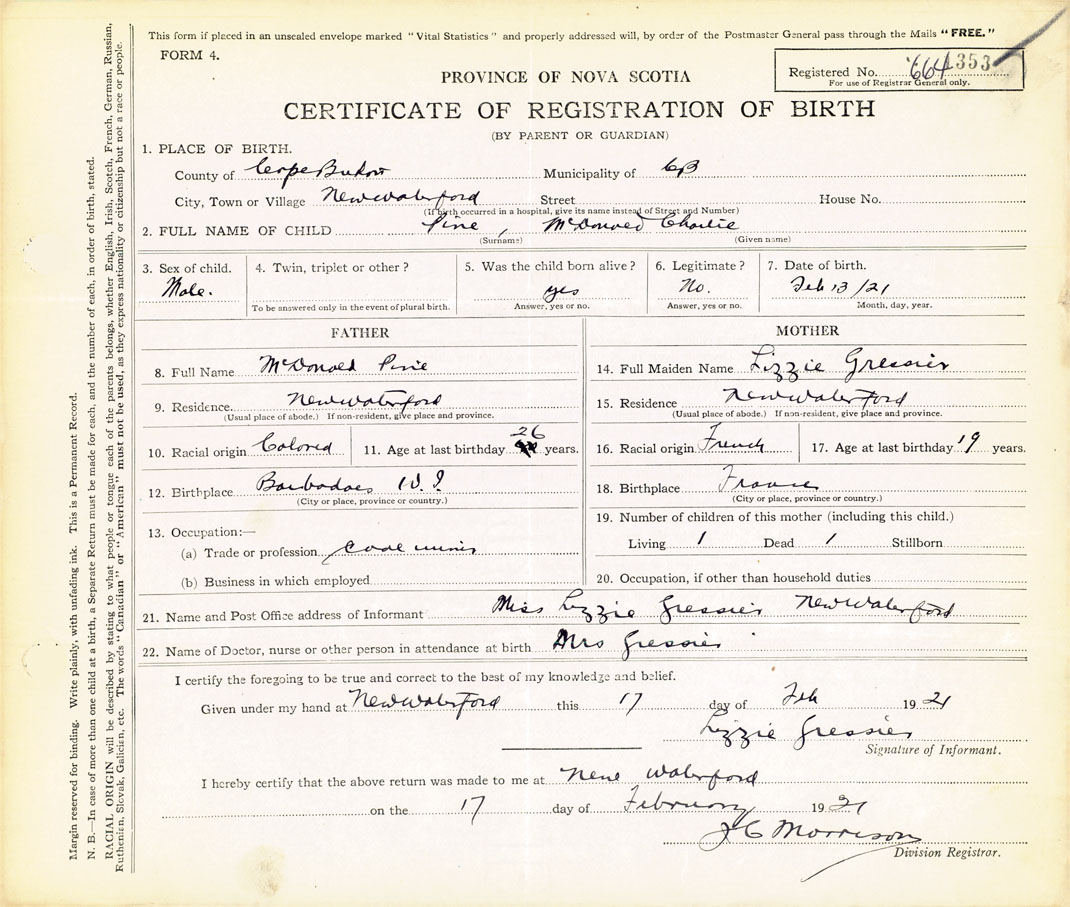 This form if placed in an unsealed envelope marked "Vital Statistics" and properly addressed will, by order of the Postmaster General pass through the Mails "FREE."
FORM 4.
Registered No. 664 353
For use of Registrar General only.
PROVINCE OF NOVA SCOTIA
CERTIFICATE OF REGISTRATION OF BIRTH
(BY PARENT OR GUARDIAN)
1. PLACE OF BIRTH.
County of Cape Breton Municipality of CB
City, Town or Village New Waterford Street House No.
(If birth occurred in a hospital, give its name instead of Street and Number)
2. FULL NAME OF CHILD Pine, McDonald Charlie
(Surname) (Given name)
3. Sex of child. 4. Twin, triplet or other? 5. Was the child born alive? 6. Legitimate? 7. Date of birth.
Male. yes No. Feb 13/21
To be answered only in the event of plural birth. Answer, yes or no. Answer, yes or no. Month, day, year.
FATHER
8. Full Name McDonald Pine
9. Residence New Waterford
(Usual place of abode.) If non-resident, give place and province.
10. Racial origin Colored 11. Age at last birthday 26 years.
12. Birthplace Barbadoes W.I.
(City or place, province or country.)
13. Occupation:—
(a) Trade or profession coal miner
(b) Business in which employed
MOTHER
14. Full Maiden Name Lizzie Gressier
15. Residence New Waterford
(Usual place of abode.) If non-resident, give place and province.
16. Racial origin French 17. Age at last birthday 19 years.
18. Birthplace France
(City or place, province or country.)
19. Number of children of this mother (including this child.)
Living 1 Dead 1 Stillborn
20. Occupation, if other than household duties
21. Name and Post Office address of Informant Miss Lizzie Gressier New Waterford
22. Name of Doctor, nurse or other person in attendance at birth Mrs Gressier
I certify the foregoing to be true and correct to the best of my knowledge and belief.
Given under my hand at New Waterford this 17 day of Feb 1921
Lizzie Gressier
Signature of Informant.
I hereby certify that the above return was made to me at New Waterford
on the 17 day of February 1921
J C Morrison
Division Registrar.
Margin reserved for binding. Write plainly, with unfading ink. This is a Permanent Record.
N. B.—In case of more than one child at a birth, a Separate Return must be made for each, and the number of each, in order of birth, stated.
RACIAL ORIGIN will be described by stating to what people or tongue each of the parents belongs, whether English, Irish, Scotch, French, German, Russian,
Ruthenian, Slovak, Galician, etc. The words "Canadian" or "American" must not be used, as they express nationality or citizenship but not a race or people.